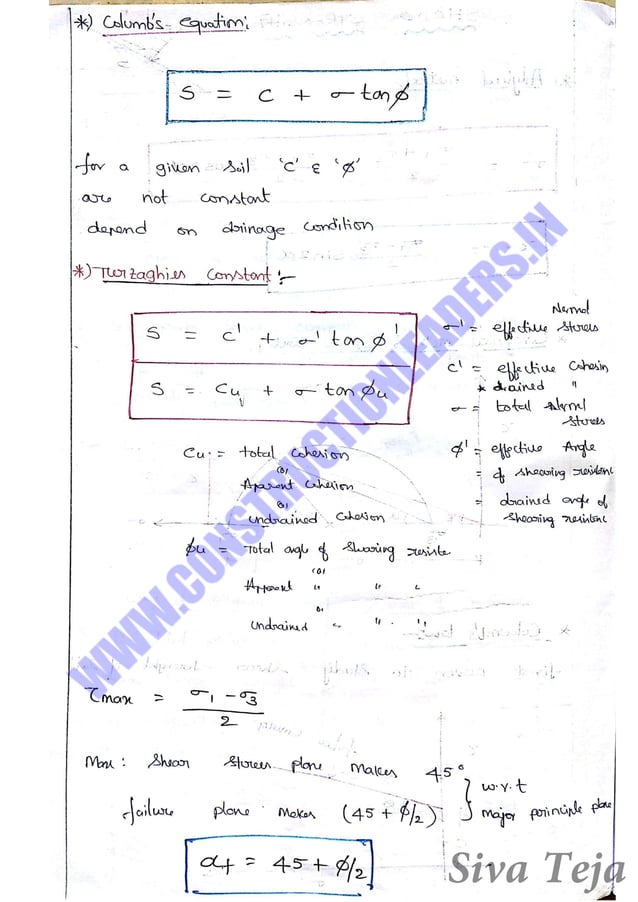 *) Columb's equation:
S = C + σ tanϕ
for a given soil 'c' & 'ϕ'
are not constant
depend on drinage condition
*) Turzaghies Constant :-
S = C' + σ' tan ϕ'
S = Cu + σ tan ϕu
σ' = effective Normal Stress
C' = effective Cohesin
* drained "
σ = total Norml
Stress
ϕ' = effective Angle
= of shearing resistent
= drained angle of
shearing resistent
Cu = total Cohesion
(or)
Apparent Cohesion
or
undrained Cohesion
ϕu = Total angle of Shearing resiste
(or)
Apparent " " "
or
undrained " " "
τmax = σ1 - σ3 / 2
Max: Shear Stress plane makes 45°
failure plane makes (45 + ϕ/2)
w.r.t
major principle plane
αf = 45 + ϕ/2
WWW.CONSTRUCTIONLEADERS.IN
Siva Teja